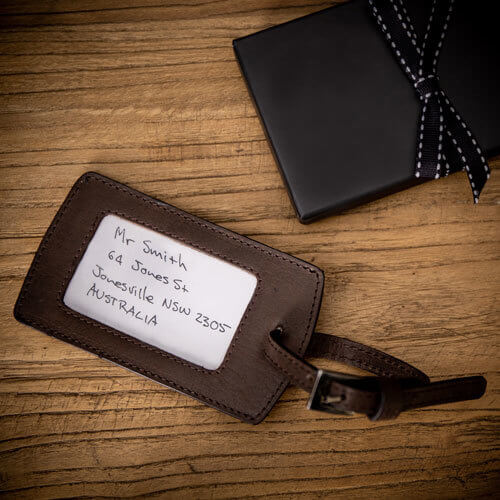 Mr Smith
64 Jones St
Jonesville NSW 2305
AUSTRALIA